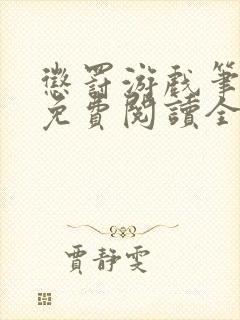 懲罰游戲筆
免費閱讀全
賈靜雯